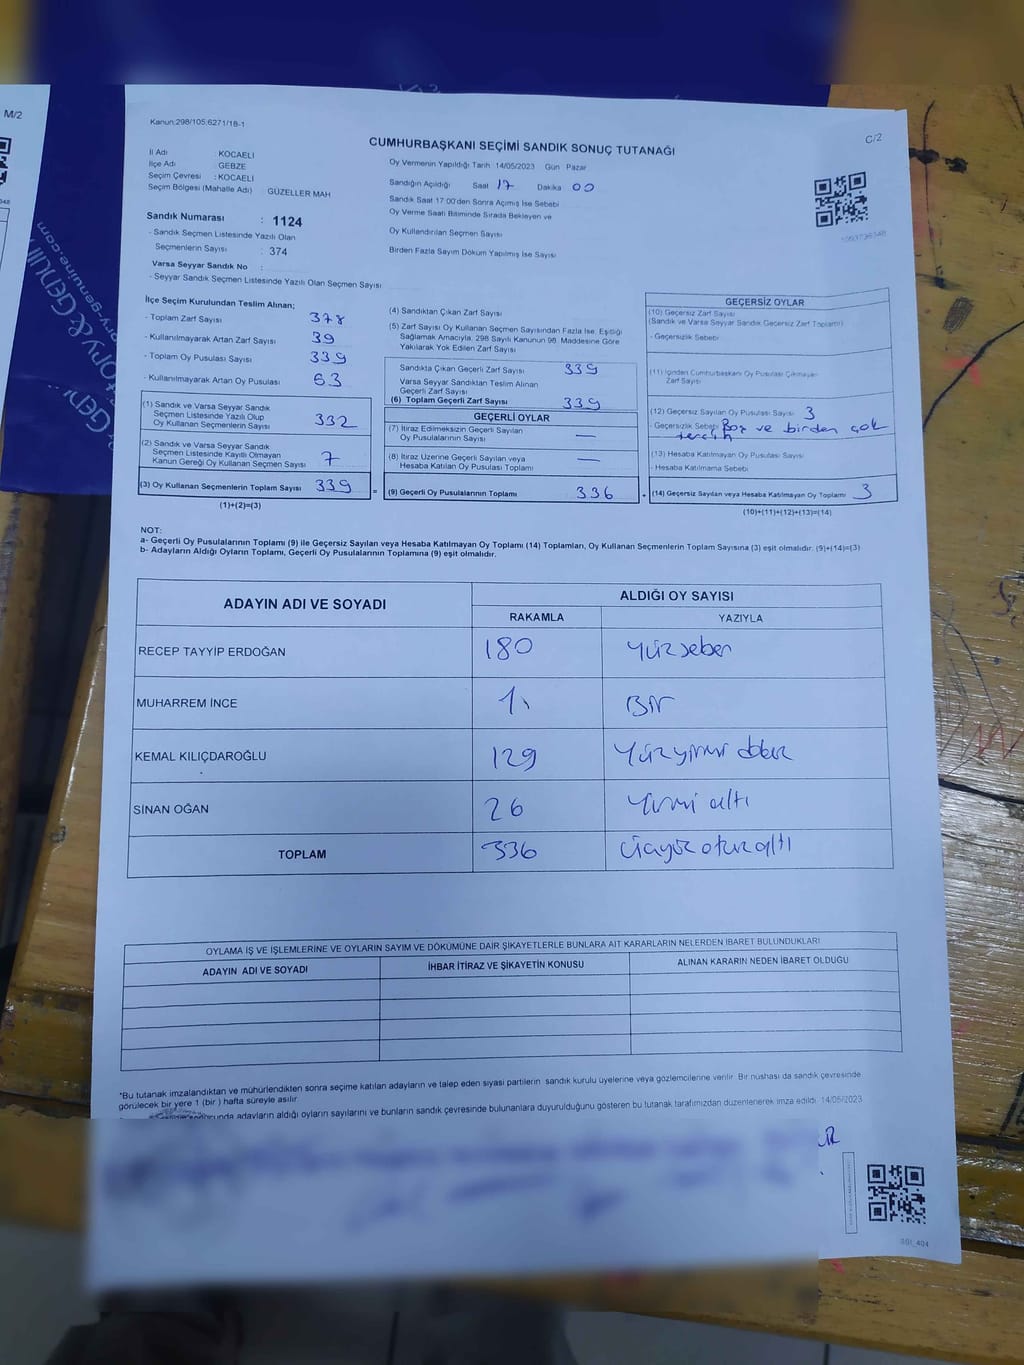 M/2
Kanun;298/105,6271/18-1
C/2
CUMHURBAŞKANI SEÇİMİ SANDIK SONUÇ TUTANAĞI
İl Adı : KOCAELİ
İlçe Adı : GEBZE
Seçim Çevresi : KOCAELİ
Seçim Bölgesi (Mahalle Adı) : GÜZELLER MAH
Sandık Numarası : 1124
- Sandık Seçmen Listesinde Yazılı Olan
Seçmenlerin Sayısı : 374
Varsa Seyyar Sandık No :
- Seyyar Sandık Seçmen Listesinde Yazılı Olan Seçmen Sayısı
Oy Vermenin Yapıldığı Tarih 14/05/2023 Gün Pazar
Sandığın Açıldığı Saat 17 Dakika 00
Sandık Saat 17:00'den Sonra Açılmış İse Sebebi
Oy Verme Saati Bitiminde Sırada Bekleyen ve
Oy Kullandırılan Seçmen Sayısı
Birden Fazla Sayım Döküm Yapılmış İse Sayısı
İlçe Seçim Kurulundan Teslim Alınan;
- Toplam Zarf Sayısı 378
- Kullanılmayarak Artan Zarf Sayısı 39
- Toplam Oy Pusulası Sayısı 339
- Kullanılmayarak Artan Oy Pusulası 63
(1) Sandık ve Varsa Seyyar Sandık
Seçmen Listesinde Yazılı Olup
Oy Kullanan Seçmenlerin Sayısı 332
(2) Sandık ve Varsa Seyyar Sandık
Seçmen Listesinde Kayıtlı Olmayan
Kanun Gereği Oy Kullanan Seçmen Sayısı 7
(3) Oy Kullanan Seçmenlerin Toplam Sayısı 339 =
(1)+(2)=(3)
(4) Sandıktan Çıkan Zarf Sayısı
(5) Zarf Sayısı Oy Kullanan Seçmen Sayısından Fazla İse, Eşitliği
Sağlamak Amacıyla, 298 Sayılı Kanunun 98. Maddesine Göre
Yakılarak Yok Edilen Zarf Sayısı
Sandıkta Çıkan Geçerli Zarf Sayısı 339
Varsa Seyyar Sandıktan Teslim Alınan
Geçerli Zarf Sayısı
(6) Toplam Geçerli Zarf Sayısı 339
GEÇERLİ OYLAR
(7) İtiraz Edilmeksizin Geçerli Sayılan
Oy Pusulalarının Sayısı —
(8) İtiraz Üzerine Geçerli Sayılan veya
Hesaba Katılan Oy Pusulası Toplamı —
(9) Geçerli Oy Pusulalarının Toplamı 336 +
GEÇERSİZ OYLAR
(10) Geçersiz Zarf Sayısı
(Sandık ve Varsa Seyyar Sandık Geçersiz Zarf Toplamı)
- Geçersizlik Sebebi
(11) İçinden Cumhurbaşkanı Oy Pusulası Çıkmayan
Zarf Sayısı
(12) Geçersiz Sayılan Oy Pusulası Sayısı 3
- Geçersizlik Sebebi Boş ve birden çok
tercih
(13) Hesaba Katılmayan Oy Pusulası Sayısı
- Hesaba Katılmama Sebebi
(14) Geçersiz Sayılan veya Hesaba Katılmayan Oy Toplamı 3
(10)+(11)+(12)+(13)=(14)
NOT:
a- Geçerli Oy Pusulalarının Toplamı (9) ile Geçersiz Sayılan veya Hesaba Katılmayan Oy Toplamı (14) Toplamları, Oy Kullanan Seçmenlerin Toplam Sayısına (3) eşit olmalıdır. (9)+(14)=(3)
b- Adayların Aldığı Oyların Toplamı, Geçerli Oy Pusulalarının Toplamına (9) eşit olmalıdır.
ADAYIN ADI VE SOYADI
ALDIĞI OY SAYISI
RAKAMLA YAZIYLA
RECEP TAYYİP ERDOĞAN 180 Yüzseksen
MUHARREM İNCE 1 Bir
KEMAL KILIÇDAROĞLU 129 Yüzyirmi dokuz
SİNAN OĞAN 26 Yirmi altı
TOPLAM 336 Üçyüz otuz altı
OYLAMA İŞ VE İŞLEMLERİNE VE OYLARIN SAYIM VE DÖKÜMÜNE DAİR ŞİKAYETLERLE BUNLARA AİT KARARLARIN NELERDEN İBARET BULUNDUKLARI
ADAYIN ADI VE SOYADI İHBAR İTİRAZ VE ŞİKAYETİN KONUSU ALINAN KARARIN NEDEN İBARET OLDUĞU
*Bu tutanak imzalandıktan ve mühürlendikten sonra seçime katılan adayların ve talep eden siyasi partilerin sandık kurulu üyelerine veya gözlemcilerine verilir. Bir nüshası da sandık çevresinde
görülecek bir yere 1 (bir ) hafta süreyle asılır.
adayların aldığı oyların sayılarını ve bunların sandık çevresinde bulunanlara duyurulduğunu gösteren bu tutanak tarafımızdan düzenlenerek imza edildi. 14/05/2023